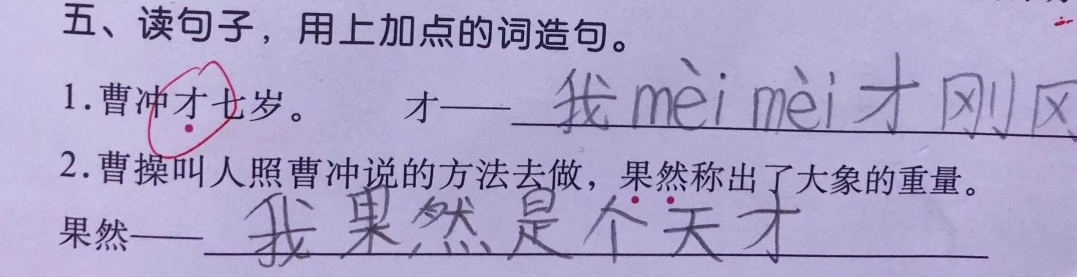 五、读句子，用上加点的词造句。
1.曹冲才七岁。 才—— 我mèi mèi才刚
2.曹操叫人照曹冲说的方法去做，果然称出了大象的重量。
果然—— 我果然是个天才